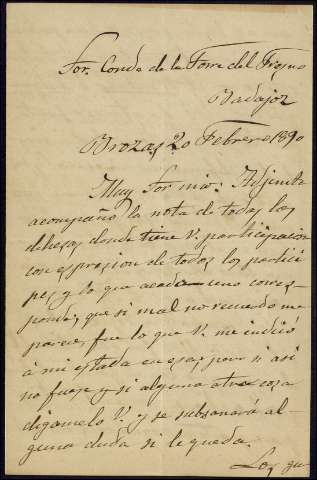 Sor. Conde de la Torre del Fresno
Badajoz
Brozas 20 Febrero 1890
Muy Sor mio: Adjunta
acompaño la nota de todas las
dehesas donde tiene V. participacion
con espresion de todos los partici
pes, y lo que acada uno corres-
ponde; que si mal no recuerdo me
parece fue lo que V. me indicó
á mi estada en esa; pero si asi
no fuese y si alguna otra cosa
digamelo V. y se subsanará al-
guna duda si le queda.
Los